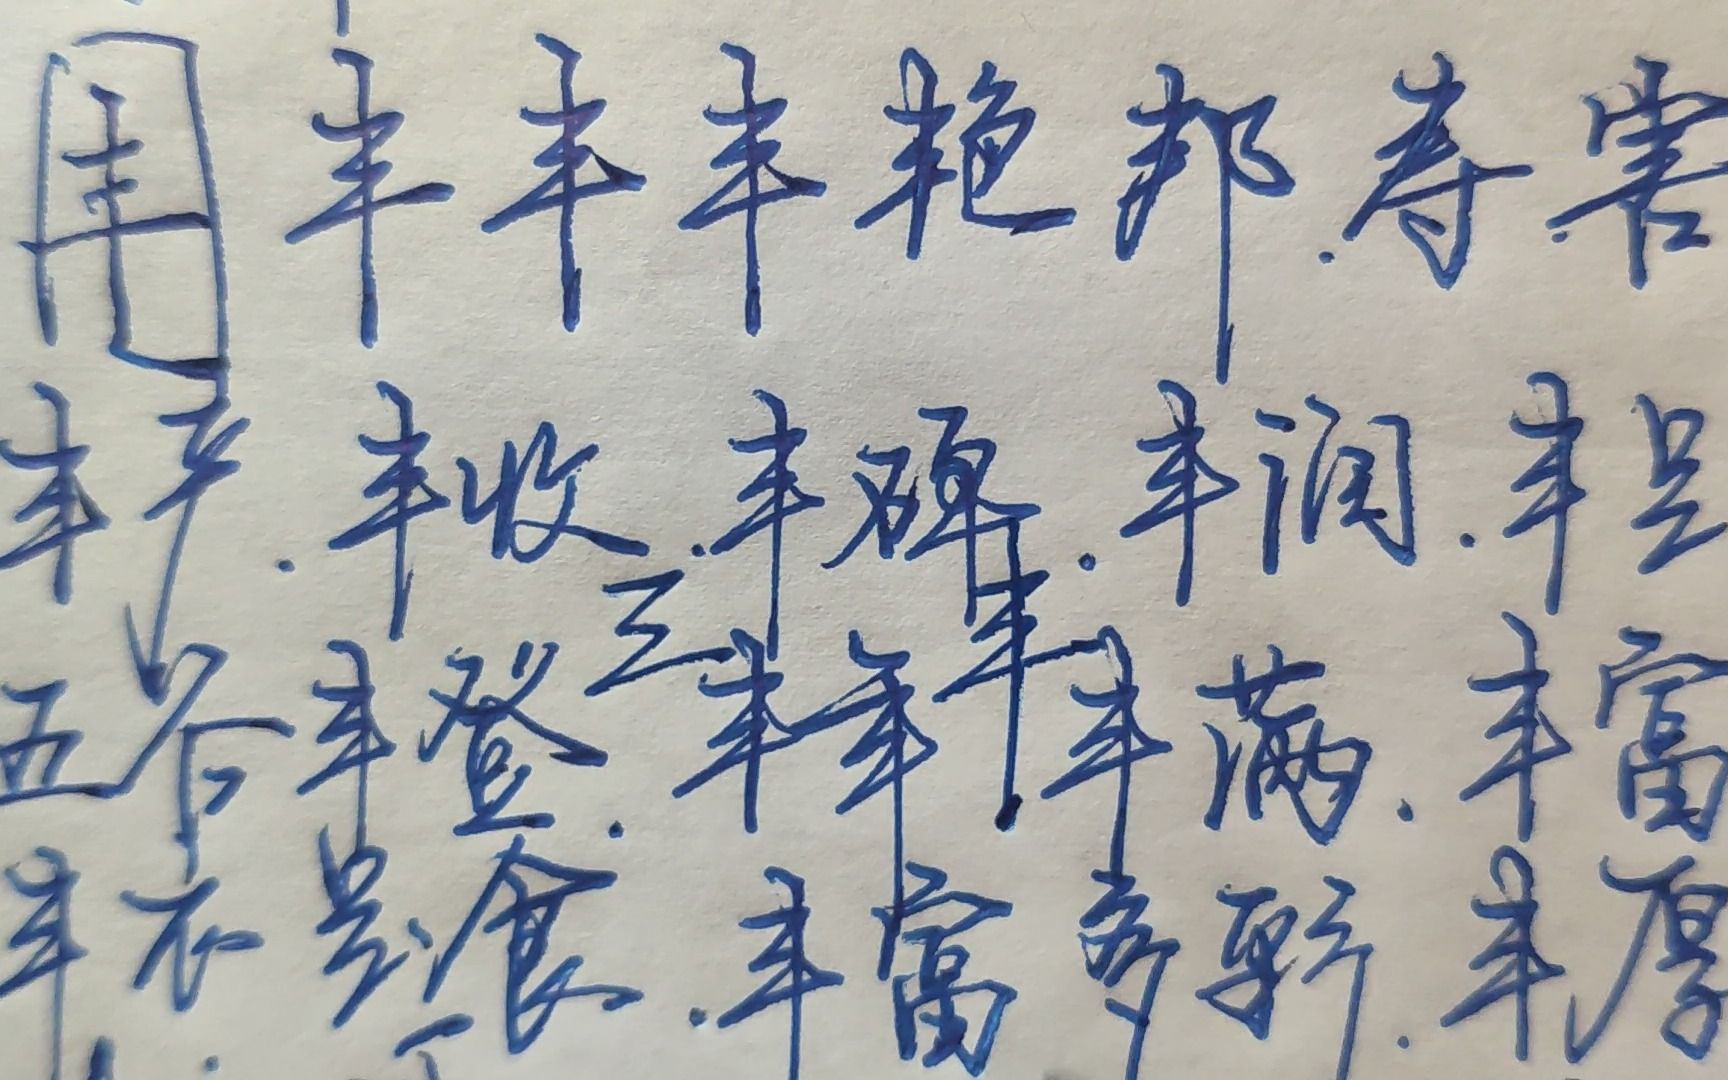 丰 丰 丰 丰 艳 邦.寿.害
丰产.丰收.丰碑.丰润.丰足
三丰
五谷丰登.丰年 丰满.丰富
丰衣足食.丰富多彩.丰厚